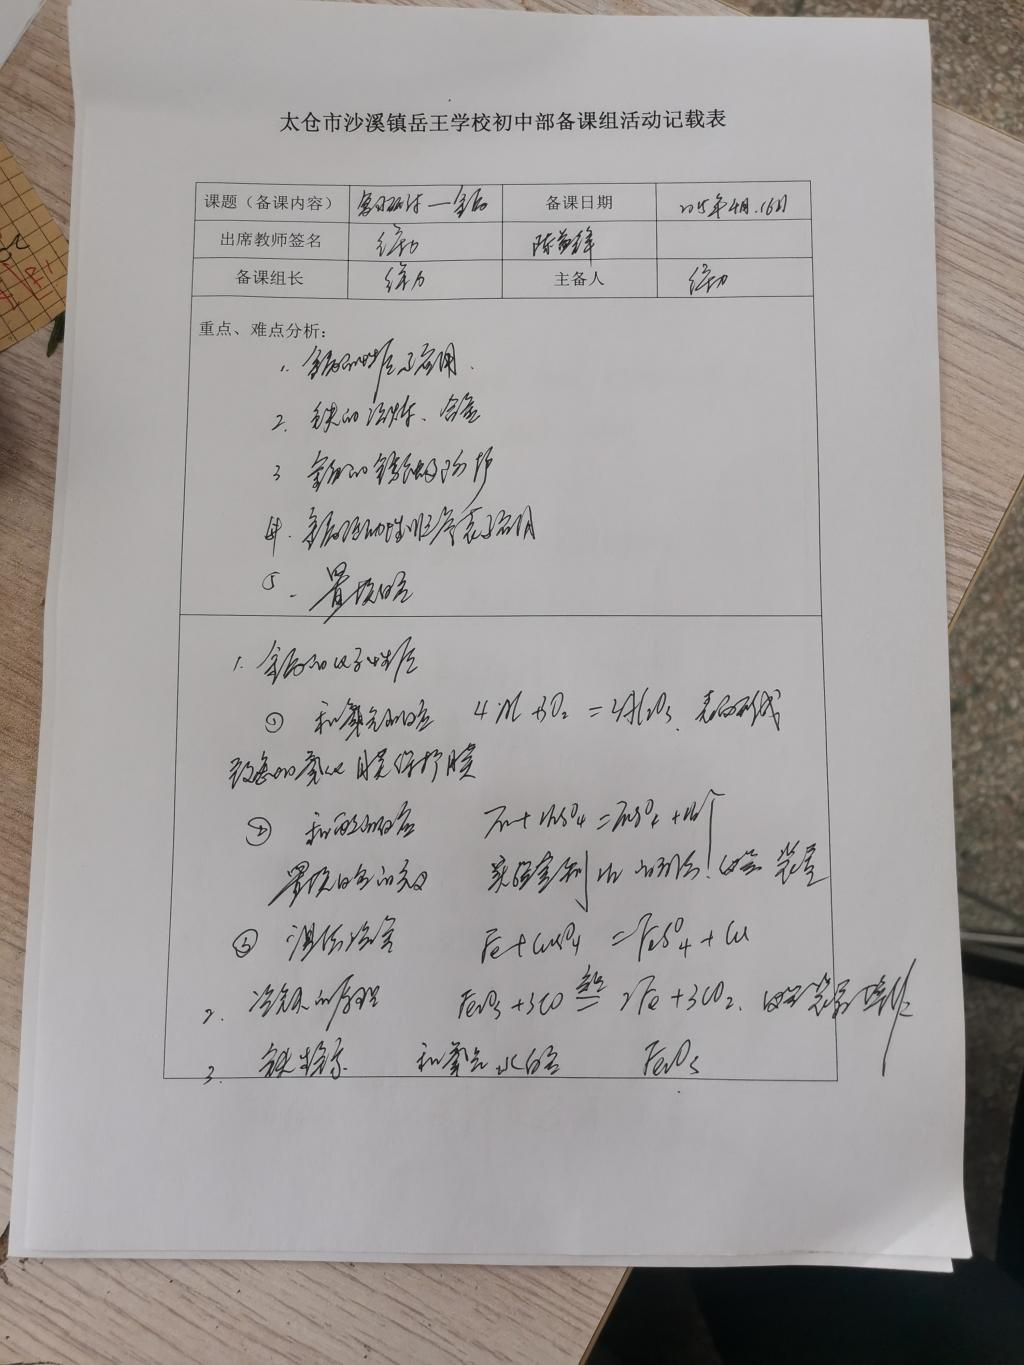 太仓市沙溪镇岳王学校初中部备课组活动记载表
课题（备课内容） 金属 备课日期 年4月.16日
出席教师签名 徐力
备课组长 徐力 主备人 徐力
重点、难点分析：
1. 金属的性质与应用.
2. 铁的冶炼、合金
3 金属的锈蚀及防护
4. 金属活动性顺序表与应用
5. 置换反应
1. 金属的化学性质
① 和氧气的反应 4Al+3O₂=2Al₂O₃.
致密的氧化膜保护膜
② 和酸的反应 Zn+H₂SO₄=ZnSO₄+H₂↑
置换反应的 实验室制H₂ 装置
③ Fe+CuSO₄=FeSO₄+Cu
2. 冶铁的原理 Fe₂O₃+3CO 高温= 2Fe+3CO₂.
3. 铁生锈 和氧气水反应 Fe₂O₃